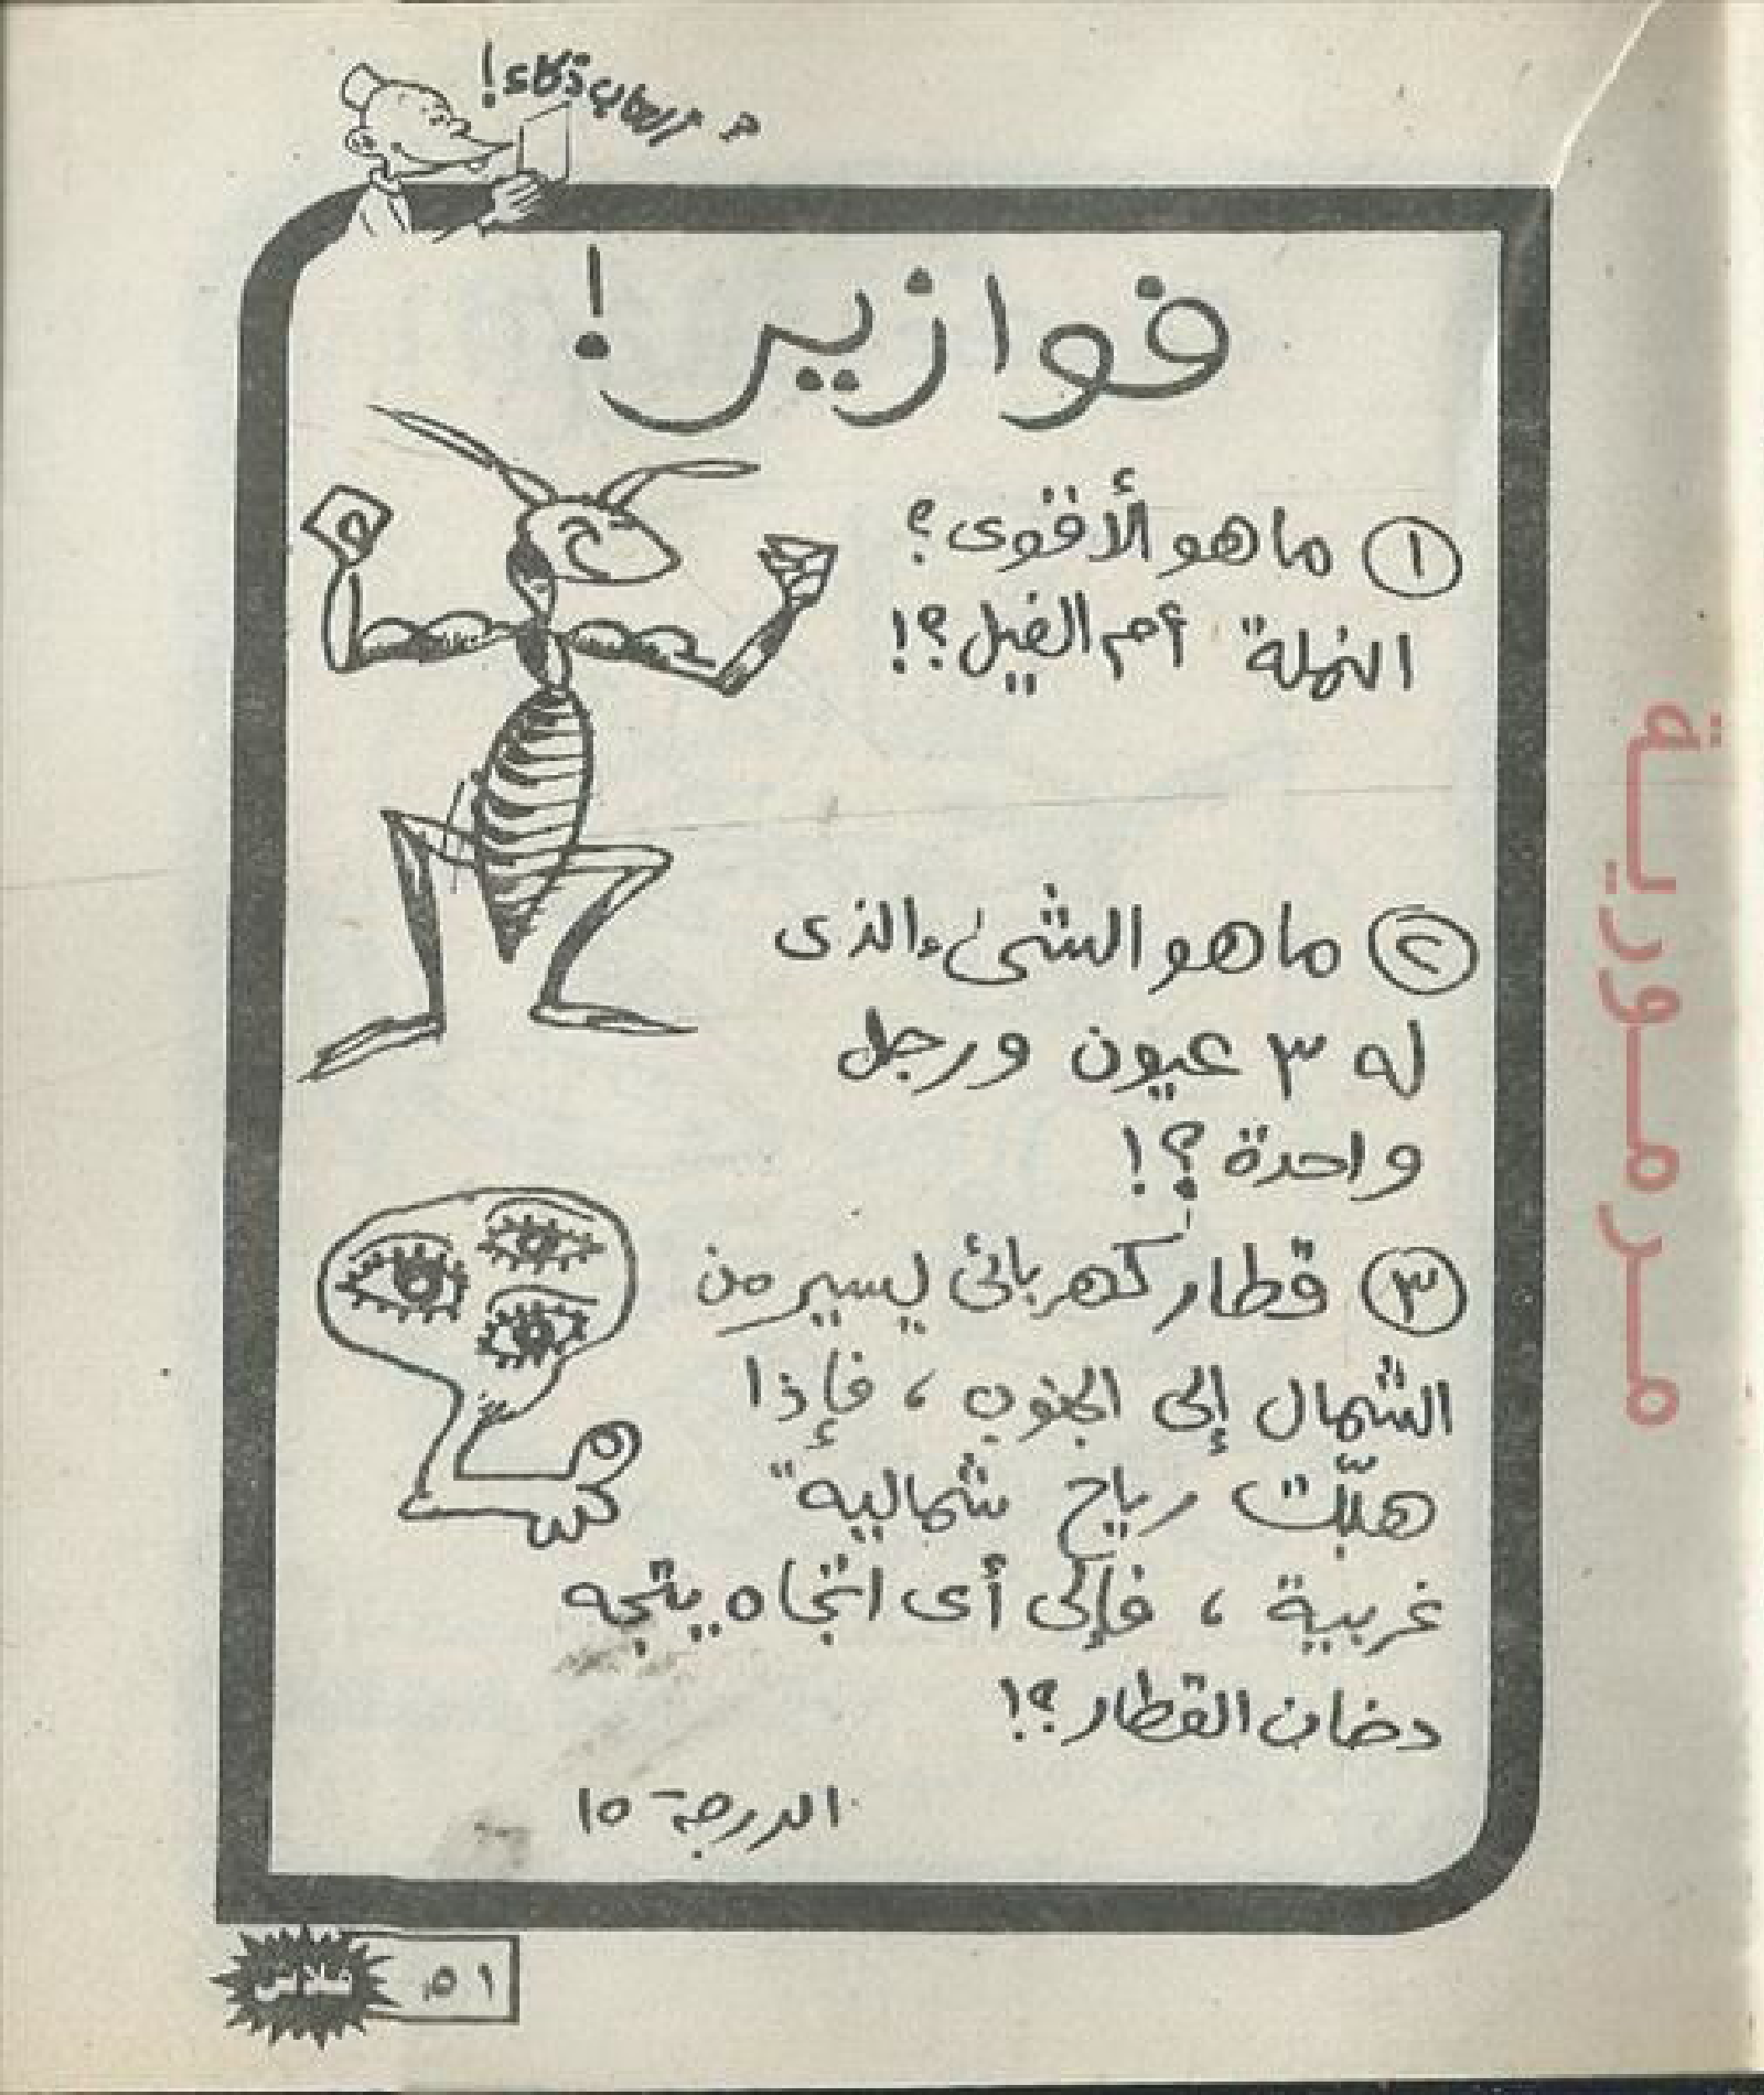 ألعاب ذكاء!
فوازير!
١ ما هو ألأقوى؟
النملة أم الفيل؟!
٢ ما هو الشىء الذى
له ٣ عيون ورجل
واحدة؟!
٣ قطار كهربائى يسير من
الشمال إلى الجنوب، فإذا
هبّت رياح شمالية
غربية، فإلى أى اتجاه يتجه
دخان القطار؟!
الدرجة - ١٥
فلاش
٥١
مرمورية